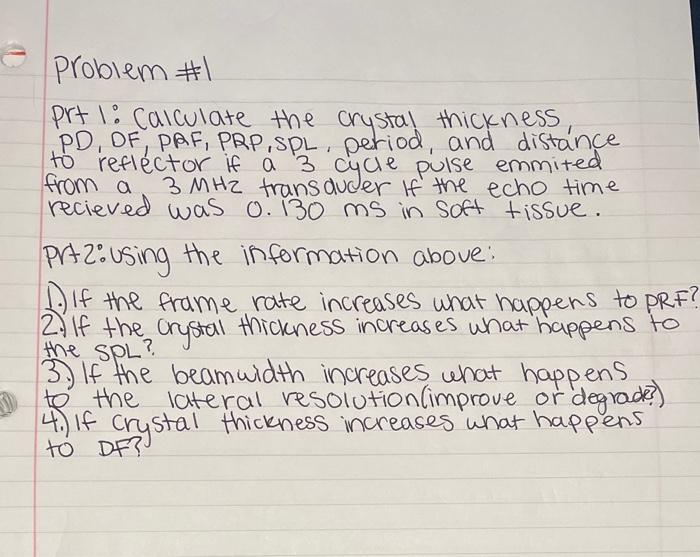 Problem #1
Prt 1: Calculate the crystal thickness,
PD, DF, PRF, PRP, SPL, period, and distance
to reflector if a 3 cycle pulse emmited
from a 3 MHz transducer if the echo time
recieved was 0.130 ms in soft tissue.
Prt 2: using the information above:
1.) If the frame rate increases what happens to PRF?
2.) If the crystal thickness increases what happens to
the SPL?
3.) If the beamwidth increases what happens
to the lateral resolution (improve or degrade?)
4.) If crystal thickness increases what happens
to DF?